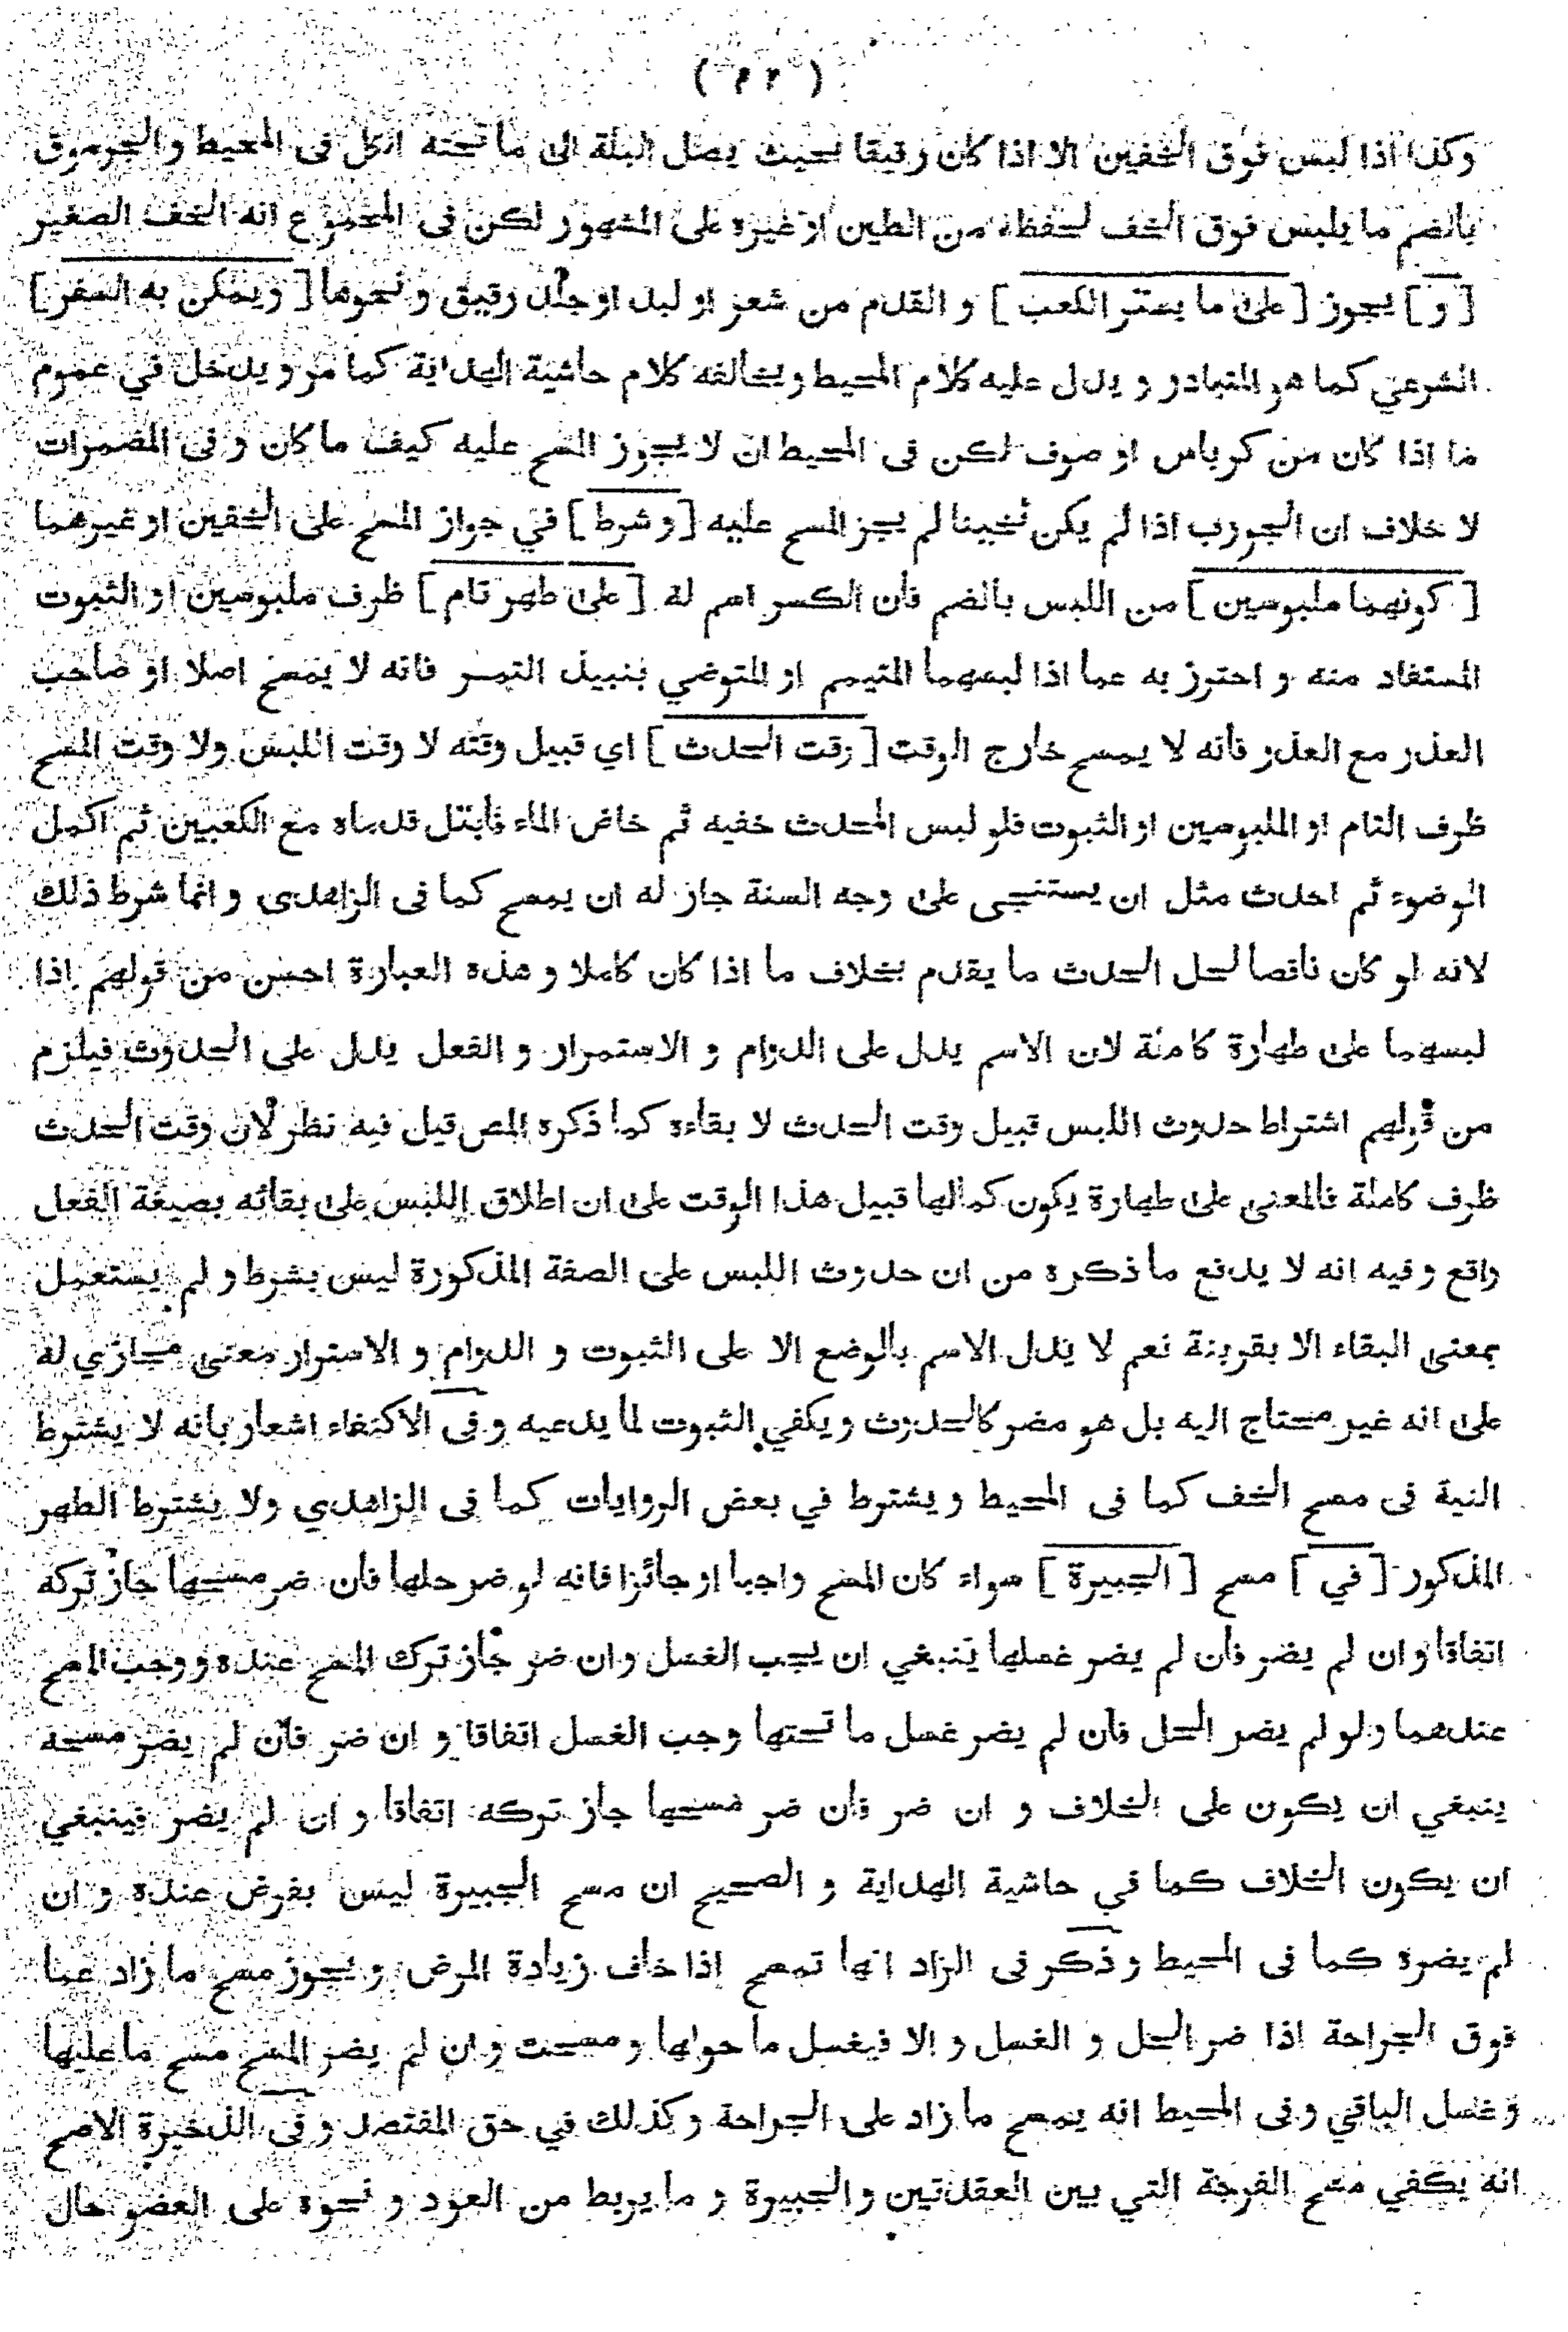 ( ٤٢ )
وكذا اذا لبس فوق الخفين الا اذا كان رقيقا بحيث يصل البلة الى ما تحته الكل فى المحيط و الجرموق
بالضم ما يلبس فوق الخف لحفظه من الطين او غيره على المشهور لكن فى المجموع انه الخف الصغير
[ و ] يجوز [ على ما يستر الكعب ] و القدم من شعر او لبد او جلد رقيق و نحوها [ ويمكن به السفر ]
الشرعي كما هو المتبادر و يدل عليه كلام المحيط و يخالفه كلام حاشية الهداية كما مر و يدخل في عموم
ما اذا كان من كرباس او صوف لكن فى المحيط ان لا يجوز المسح عليه كيف ما كان و فى المضمرات
لا خلاف ان الجورب اذا لم يكن ثخينا لم يجز المسح عليه [ و شرط ] في جواز المسح على الخفين او غيرهما
[ كونهما ملبوسين ] من اللبس بالضم فان الكسر اسم له [ على طهر تام ] ظرف ملبوسين او الثبوت
المستفاد منه و احترز به عما اذا لبسهما المتيمم او المتوضي بنبيذ التمر فانه لا يمسح اصلا او صاحب
العذر مع العذر فانه لا يمسح خارج الوقت [ وقت الحدث ] اي قبيل وقته لا وقت اللبس ولا وقت المسح
ظرف التام او الملبوسين او الثبوت فلو لبس المحدث خفيه ثم خاض الماء فابتل قدماه مع الكعبين ثم اكمل
الوضوء ثم احدث مثل ان يستنجى على وجه السنة جاز له ان يمسح كما فى الزاهدى و انما شرط ذلك
لانه لو كان ناقصا لحل الحدث ما يقدم بخلاف ما اذا كان كاملا و هذه العبارة احسن من قولهم اذا
لبسهما على طهارة كاملة لان الاسم يدل على الدوام و الاستمرار و الفعل يدل على الحدوث فيلزم
من قولهم اشتراط حدوث اللبس قبيل وقت الحدث لا بقاءه كما ذكره المص قيل فيه نظر لان وقت الحدث
ظرف كاملة فالمعنى على طهارة يكون كمالها قبيل هذا الوقت على ان اطلاق اللبس على بقائه بصيغة الفعل
واقع و فيه انه لا يدفع ما ذكره من ان حدوث اللبس على الصفة المذكورة ليس بشرط و لم يستعمل
بمعنى البقاء الا بقرينة نعم لا يدل الاسم بالوضع الا على الثبوت و الدوام و الاستمرار معنى مجازي له
على انه غير محتاج اليه بل هو مضر كالحدوث و يكفي الثبوت لما يدعيه و فى الاكتفاء اشعار بانه لا يشترط
النية فى مسح الخف كما فى المحيط و يشترط في بعض الروايات كما فى الزاهدي ولا يشترط الطهر
المذكور [ في ] مسح [ الجبيرة ] سواء كان المسح واجبا او جائزا فانه لو ضر حلها فان ضر مسحها جاز تركه
اتفاقا و ان لم يضر فان لم يضر غسلها ينبغي ان يجب الغسل و ان ضر جاز ترك المسح عنده و وجب المسح
عندهما و لو لم يضر الحل فان لم يضر غسل ما تحتها وجب الغسل اتفاقا و ان ضر فان لم يضر مسحه
ينبغي ان يكون على الخلاف و ان ضر فان ضر مسحها جاز تركه اتفاقا و ان لم يضر فينبغي
ان يكون الخلاف كما في حاشية الهداية و الصحيح ان مسح الجبيرة ليس بفرض عنده و ان
لم يضره كما فى المحيط و ذكر فى الزاد انها تمسح اذا خاف زيادة المرض و يجوز مسح ما زاد عما
فوق الجراحة اذا ضر الحل و الغسل و الا فيغسل ما حولها و مسحت و ان لم يضر المسح مسح ما عليها
و غسل الباقي و فى المحيط انه يمسح ما زاد على الجراحة و كذلك في حق المفتصد و فى الذخيرة الاصح
انه يكفي مسح الفرجة التي بين العقدتين و الجبيرة و ما يربط من العود و نحوه على العضو حال